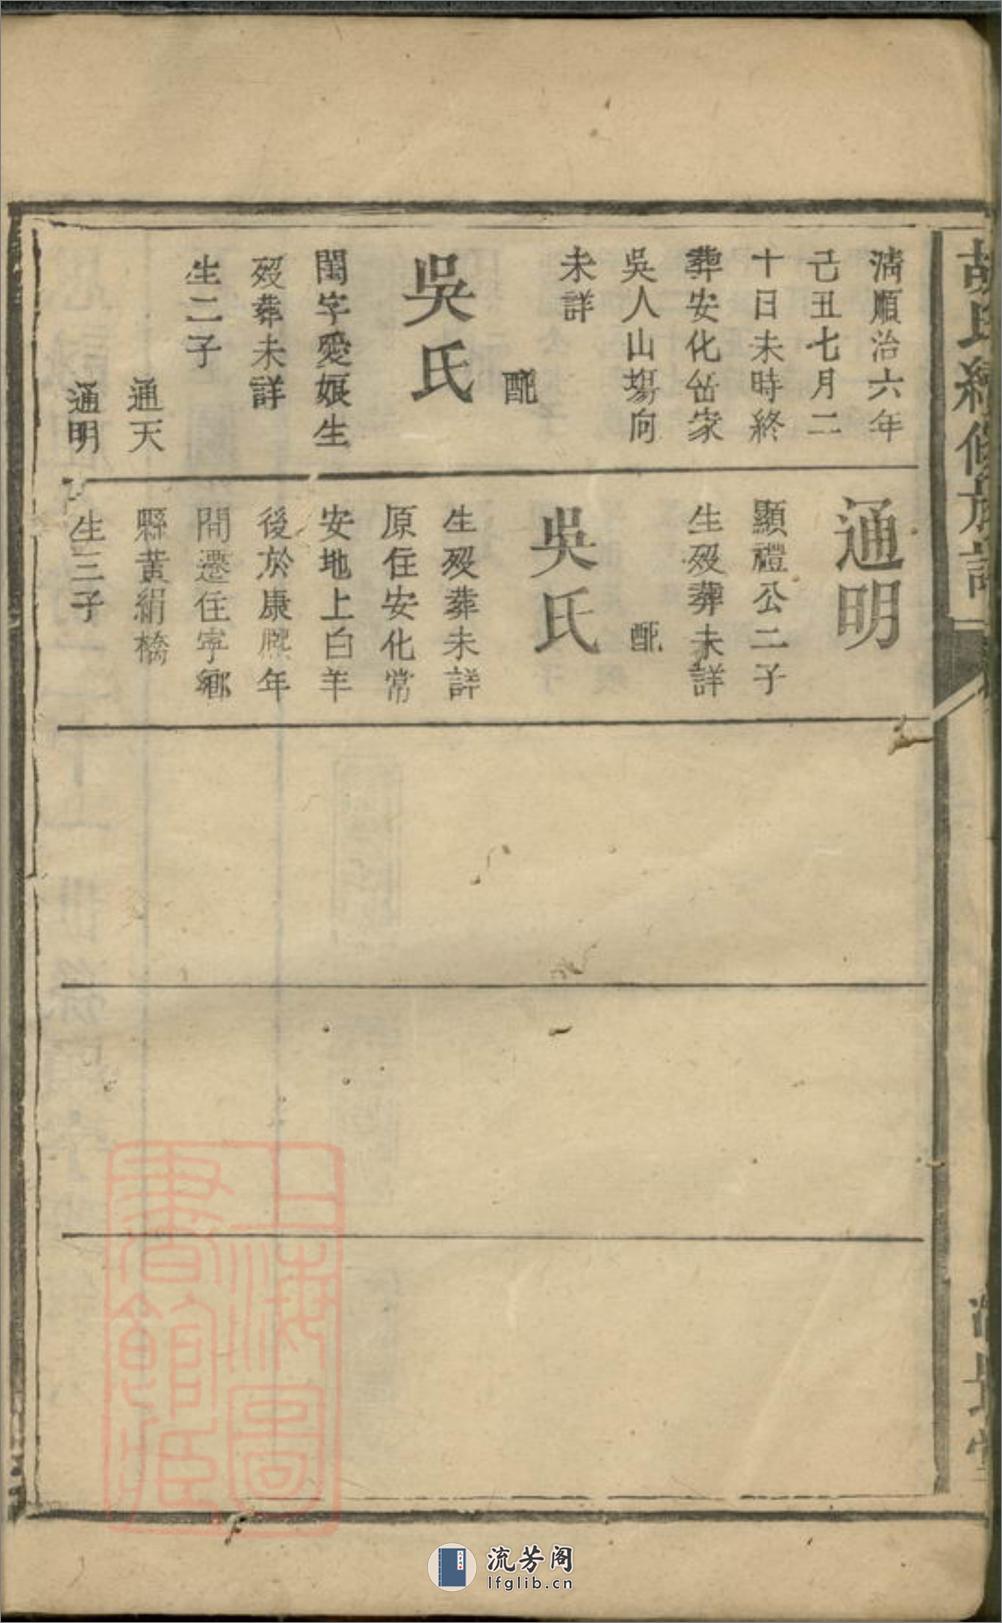 清順治六年
己丑七月二
十日未時終
葬安化岳家
吳人山塲向
未詳
配
吳氏
閨字愛娘生
歿葬未詳
生二子
通天
通明
通明
顯禮公二子
生歿葬未詳
配
吳氏
生歿葬未詳
原住安化常
安地上白羊
後於康熙年
間遷住寧鄉
縣黃絹橋
生三子
胡氏續修族譜
上海圖
書館藏
流芳阁
lfglib.cn